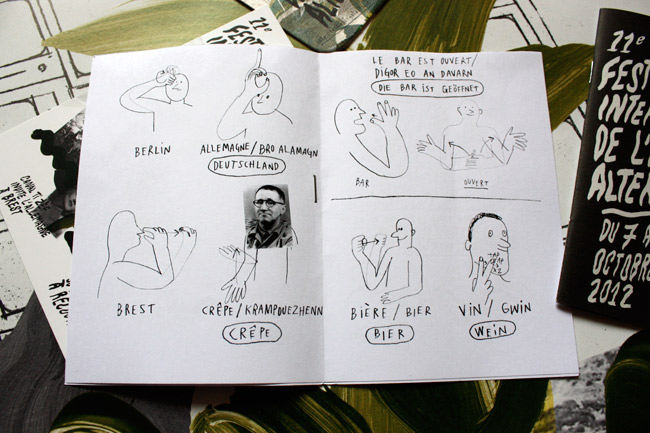 11e
FEST
BERLIN
ALLEMAGNE/BRO ALAMAGN
DEUTSCHLAND
BREST
CRÊPE/KRAMPOUEZHENN
CRÊPE
LE BAR EST OUVERT/
DIGOR EO AN DAVARN
DIE BAR IST GEÖFFNET
BAR
OUVERT
BIÈRE/BIER
BIER
VIN/GWIN
WEIN
INVITE L'ALLEMAGNE
À BREST
11e
FEST
INTE
DE L'
ALTE
DU 7 A
OCTOBR
2012